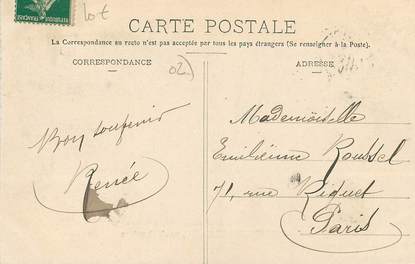 lot
CARTE POSTALE
La Correspondance au recto n'est pas acceptée par tous les pays étrangers (Se renseigner à la Poste).
CORRESPONDANCE
ADRESSE
02.)
Bon souvenir
Renée
Mademoiselle
Emilienne Roussel
71, rue Riquet
Paris